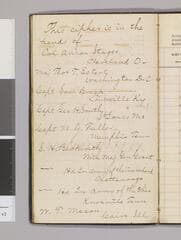 This cipher is in the
hands of —
Col. Anson Stager
Cleveland O—
Maj Thos T. Eckert
Washington D.C
Capt Saml Bruch
Louisville Ky
Capt Geo H. Smith
St Louis Mo
Capt W. G. Fuller
Memphis Tenn
S. H. Beckwith
With Maj Gen Grant
Hd Qrs Army of the Cumberland
Chattanooga
Hd Qrs Army of the Ohio
Knoxville Tenn
W. P. Mason
Cairo Ill